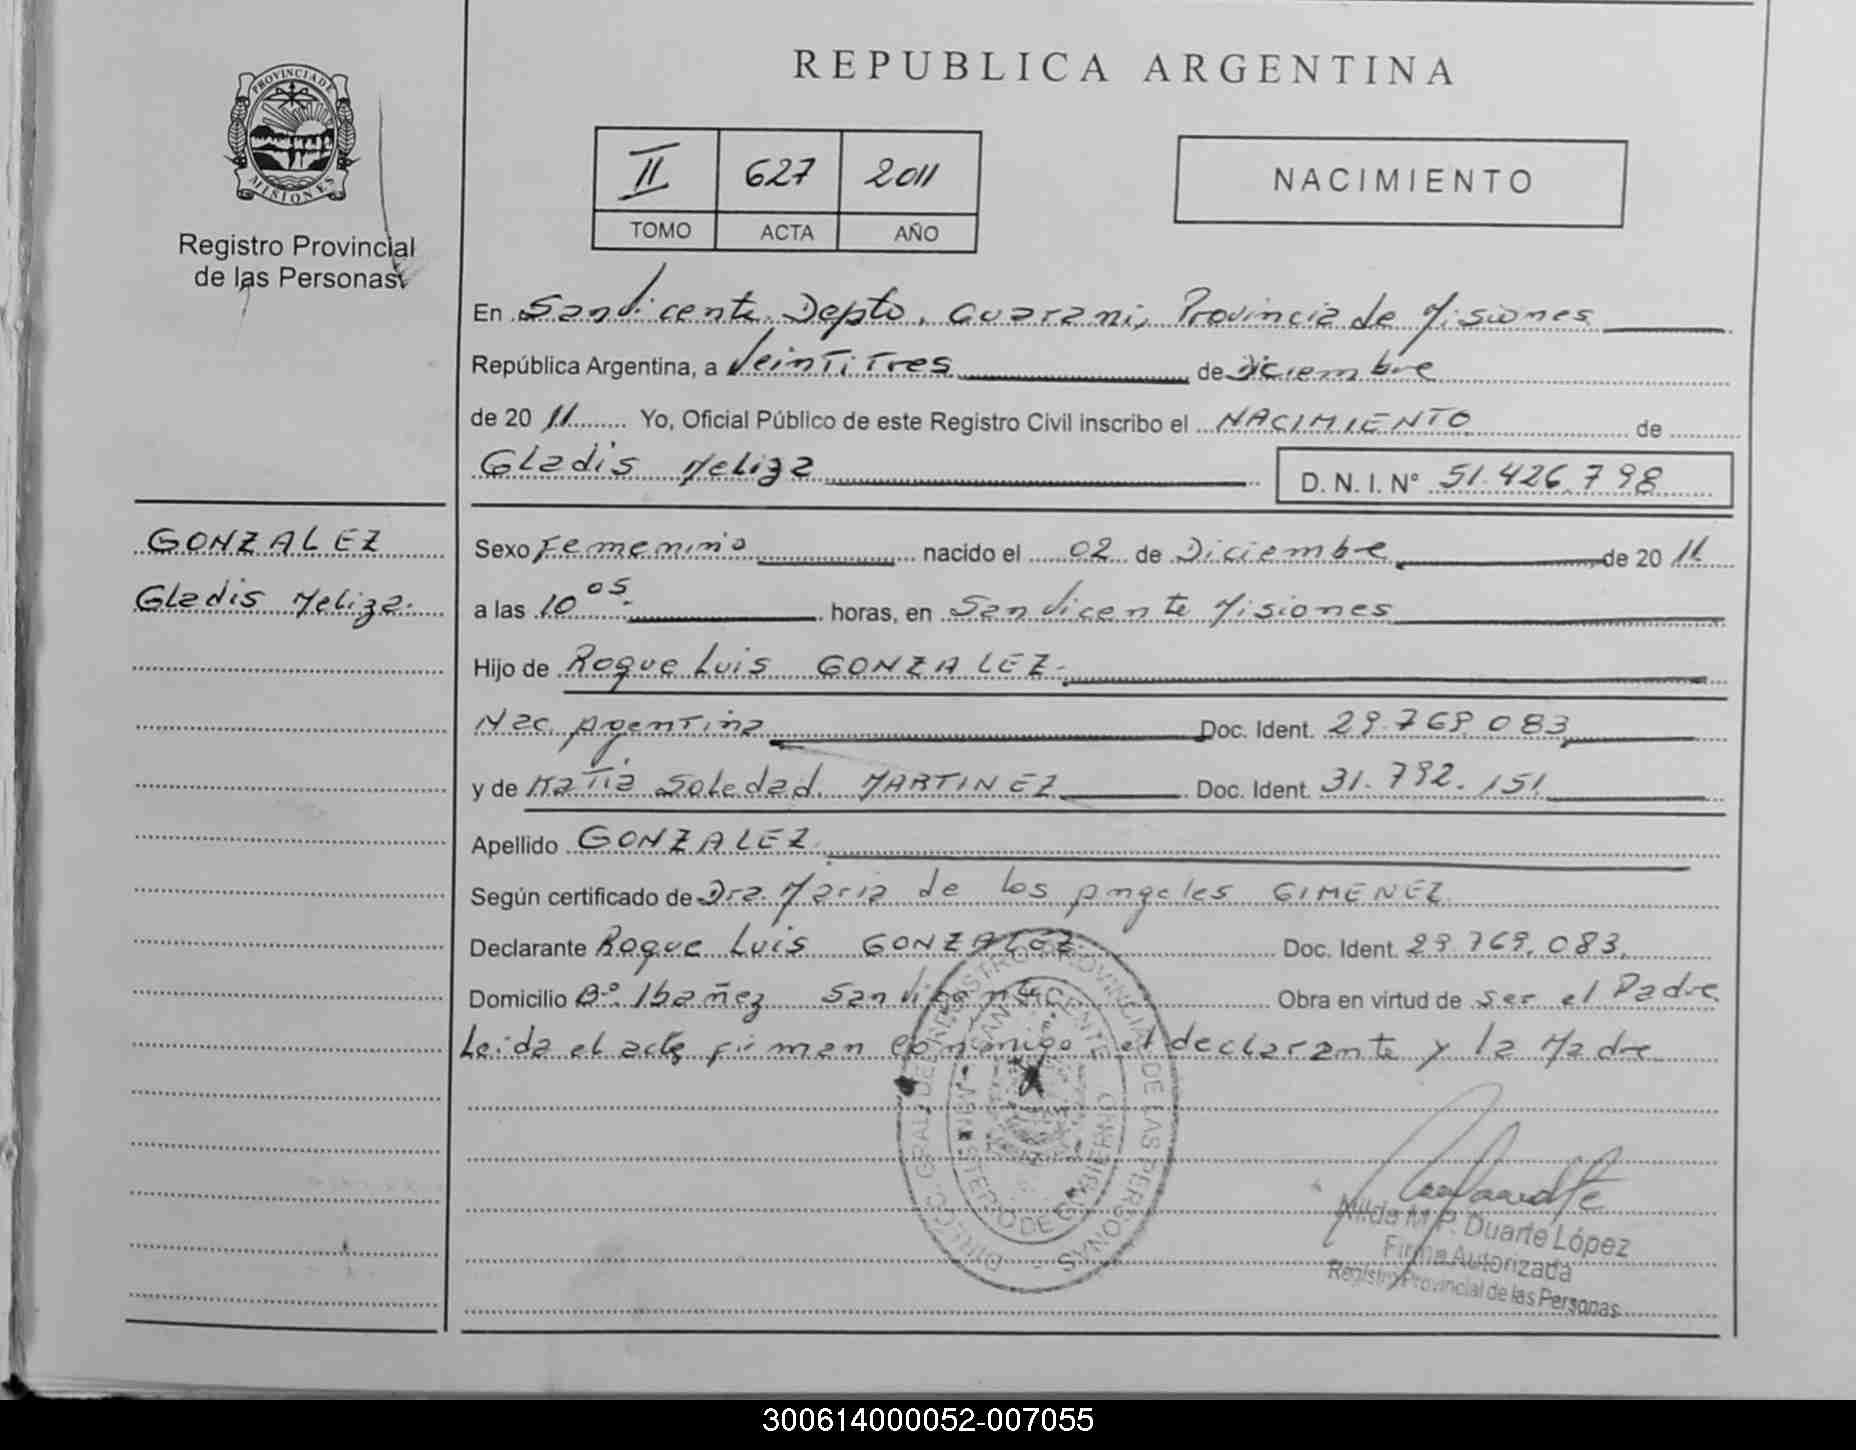 REPUBLICA ARGENTINA
PROVINCIA DE
MISIONES
Registro Provincial
de las Personas
II 627 2011
TOMO ACTA AÑO
NACIMIENTO
En San Vicente Depto. Guarani, Provincia de Misiones
República Argentina, a Veintitres de Diciembre
de 20 11 Yo, Oficial Público de este Registro Civil inscribo el NACIMIENTO de
Gladis Meliza D. N. I. N° 51.426.798
GONZALEZ
Gladis Meliza.
Sexo Femenino nacido el 02 de Diciembre de 20 11
a las 10 05 horas, en San Vicente Misiones
Hijo de Roque Luis GONZALEZ.
Nac. Argentina Doc. Ident. 29.769.083
y de Katia Soledad MARTINEZ Doc. Ident. 31.792.151
Apellido GONZALEZ
Según certificado de Dra. Maria de los Angeles GIMENEZ
Declarante Roque Luis GONZALEZ. Doc. Ident. 29.769.083.
Domicilio B.° Ibañez San Vicente Obra en virtud de ser el Padre
Leida el acta firman conmigo el declarante y la Madre
DIRECC. GRAL. DE REGISTRO PROVINCIAL DE LAS PERSONAS
SAN VICENTE
MINISTERIO DE GOBIERNO
Nilda M. P. Duarte López
Firma Autorizada
Registro Provincial de las Personas
300614000052-007055